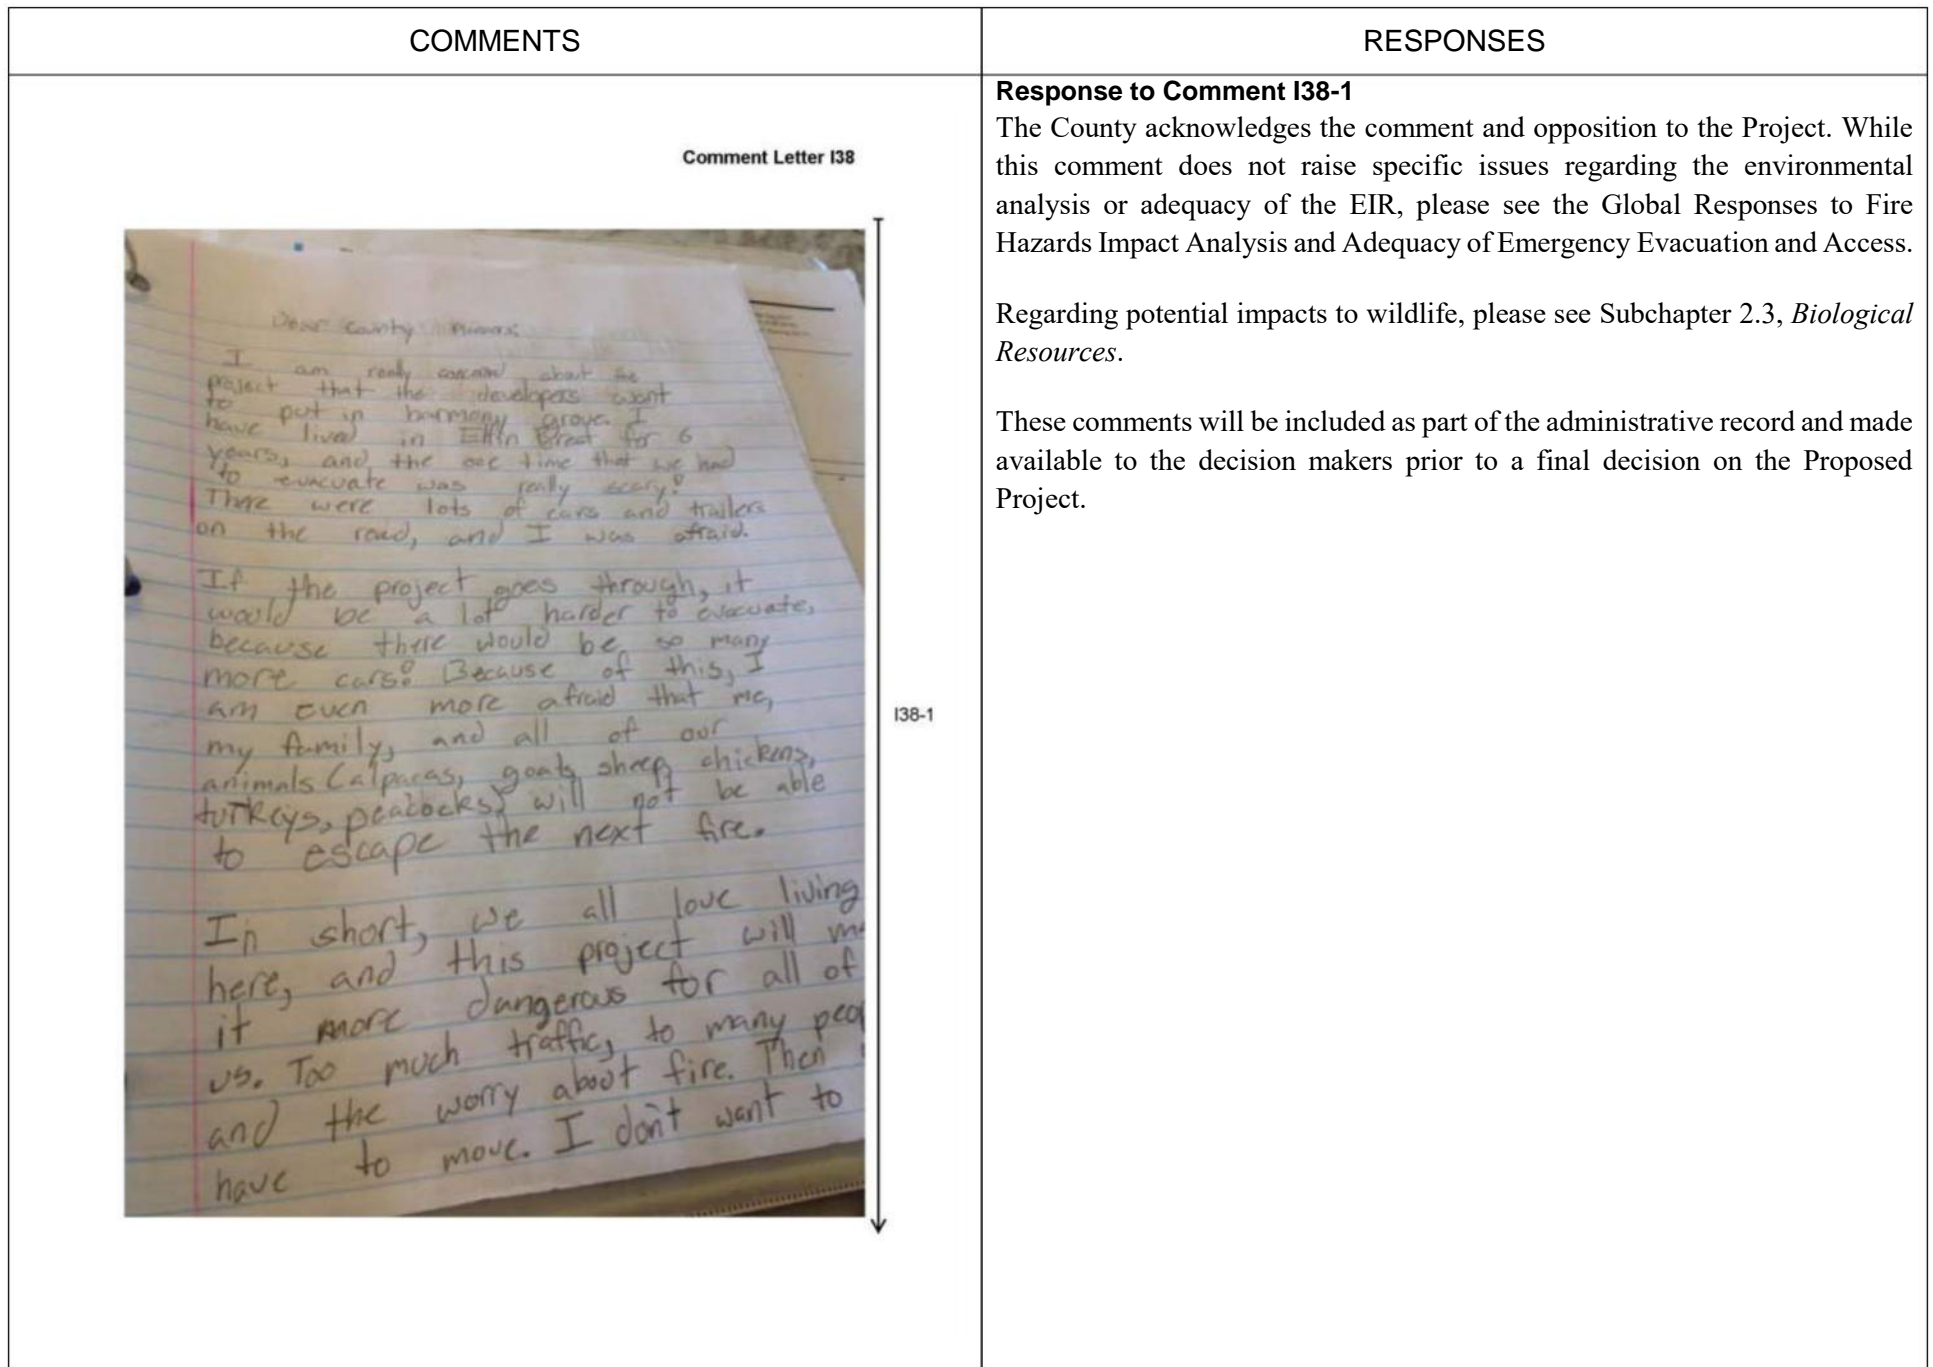 COMMENTS
RESPONSES
Comment Letter I38
Dear County
I am really about the
project that the developers want
to put in harmony grove. I
have lived in Elfin for 6
years, and the one time that we had
to evacuate was really scary!
There were lots of cars and trailers
on the road, and I was afraid.
If the project goes through, it
would be a lot harder to evacuate,
because there would be so many
more cars! Because of this, I
am even more afraid that me,
my family, and all of our
animals (alpacas, goats, sheep, chickens,
turkeys, peacocks) will not be able
to escape the next fire.
In short, we all love living
here, and this project will
it more dangerous for all of
us. Too much traffic, to many
and the worry about fire. Then
have to move. I don't want to
I38-1
Response to Comment I38-1
The County acknowledges the comment and opposition to the Project. While
this comment does not raise specific issues regarding the environmental
analysis or adequacy of the EIR, please see the Global Responses to Fire
Hazards Impact Analysis and Adequacy of Emergency Evacuation and Access.
Regarding potential impacts to wildlife, please see Subchapter 2.3, Biological
Resources.
These comments will be included as part of the administrative record and made
available to the decision makers prior to a final decision on the Proposed
Project.